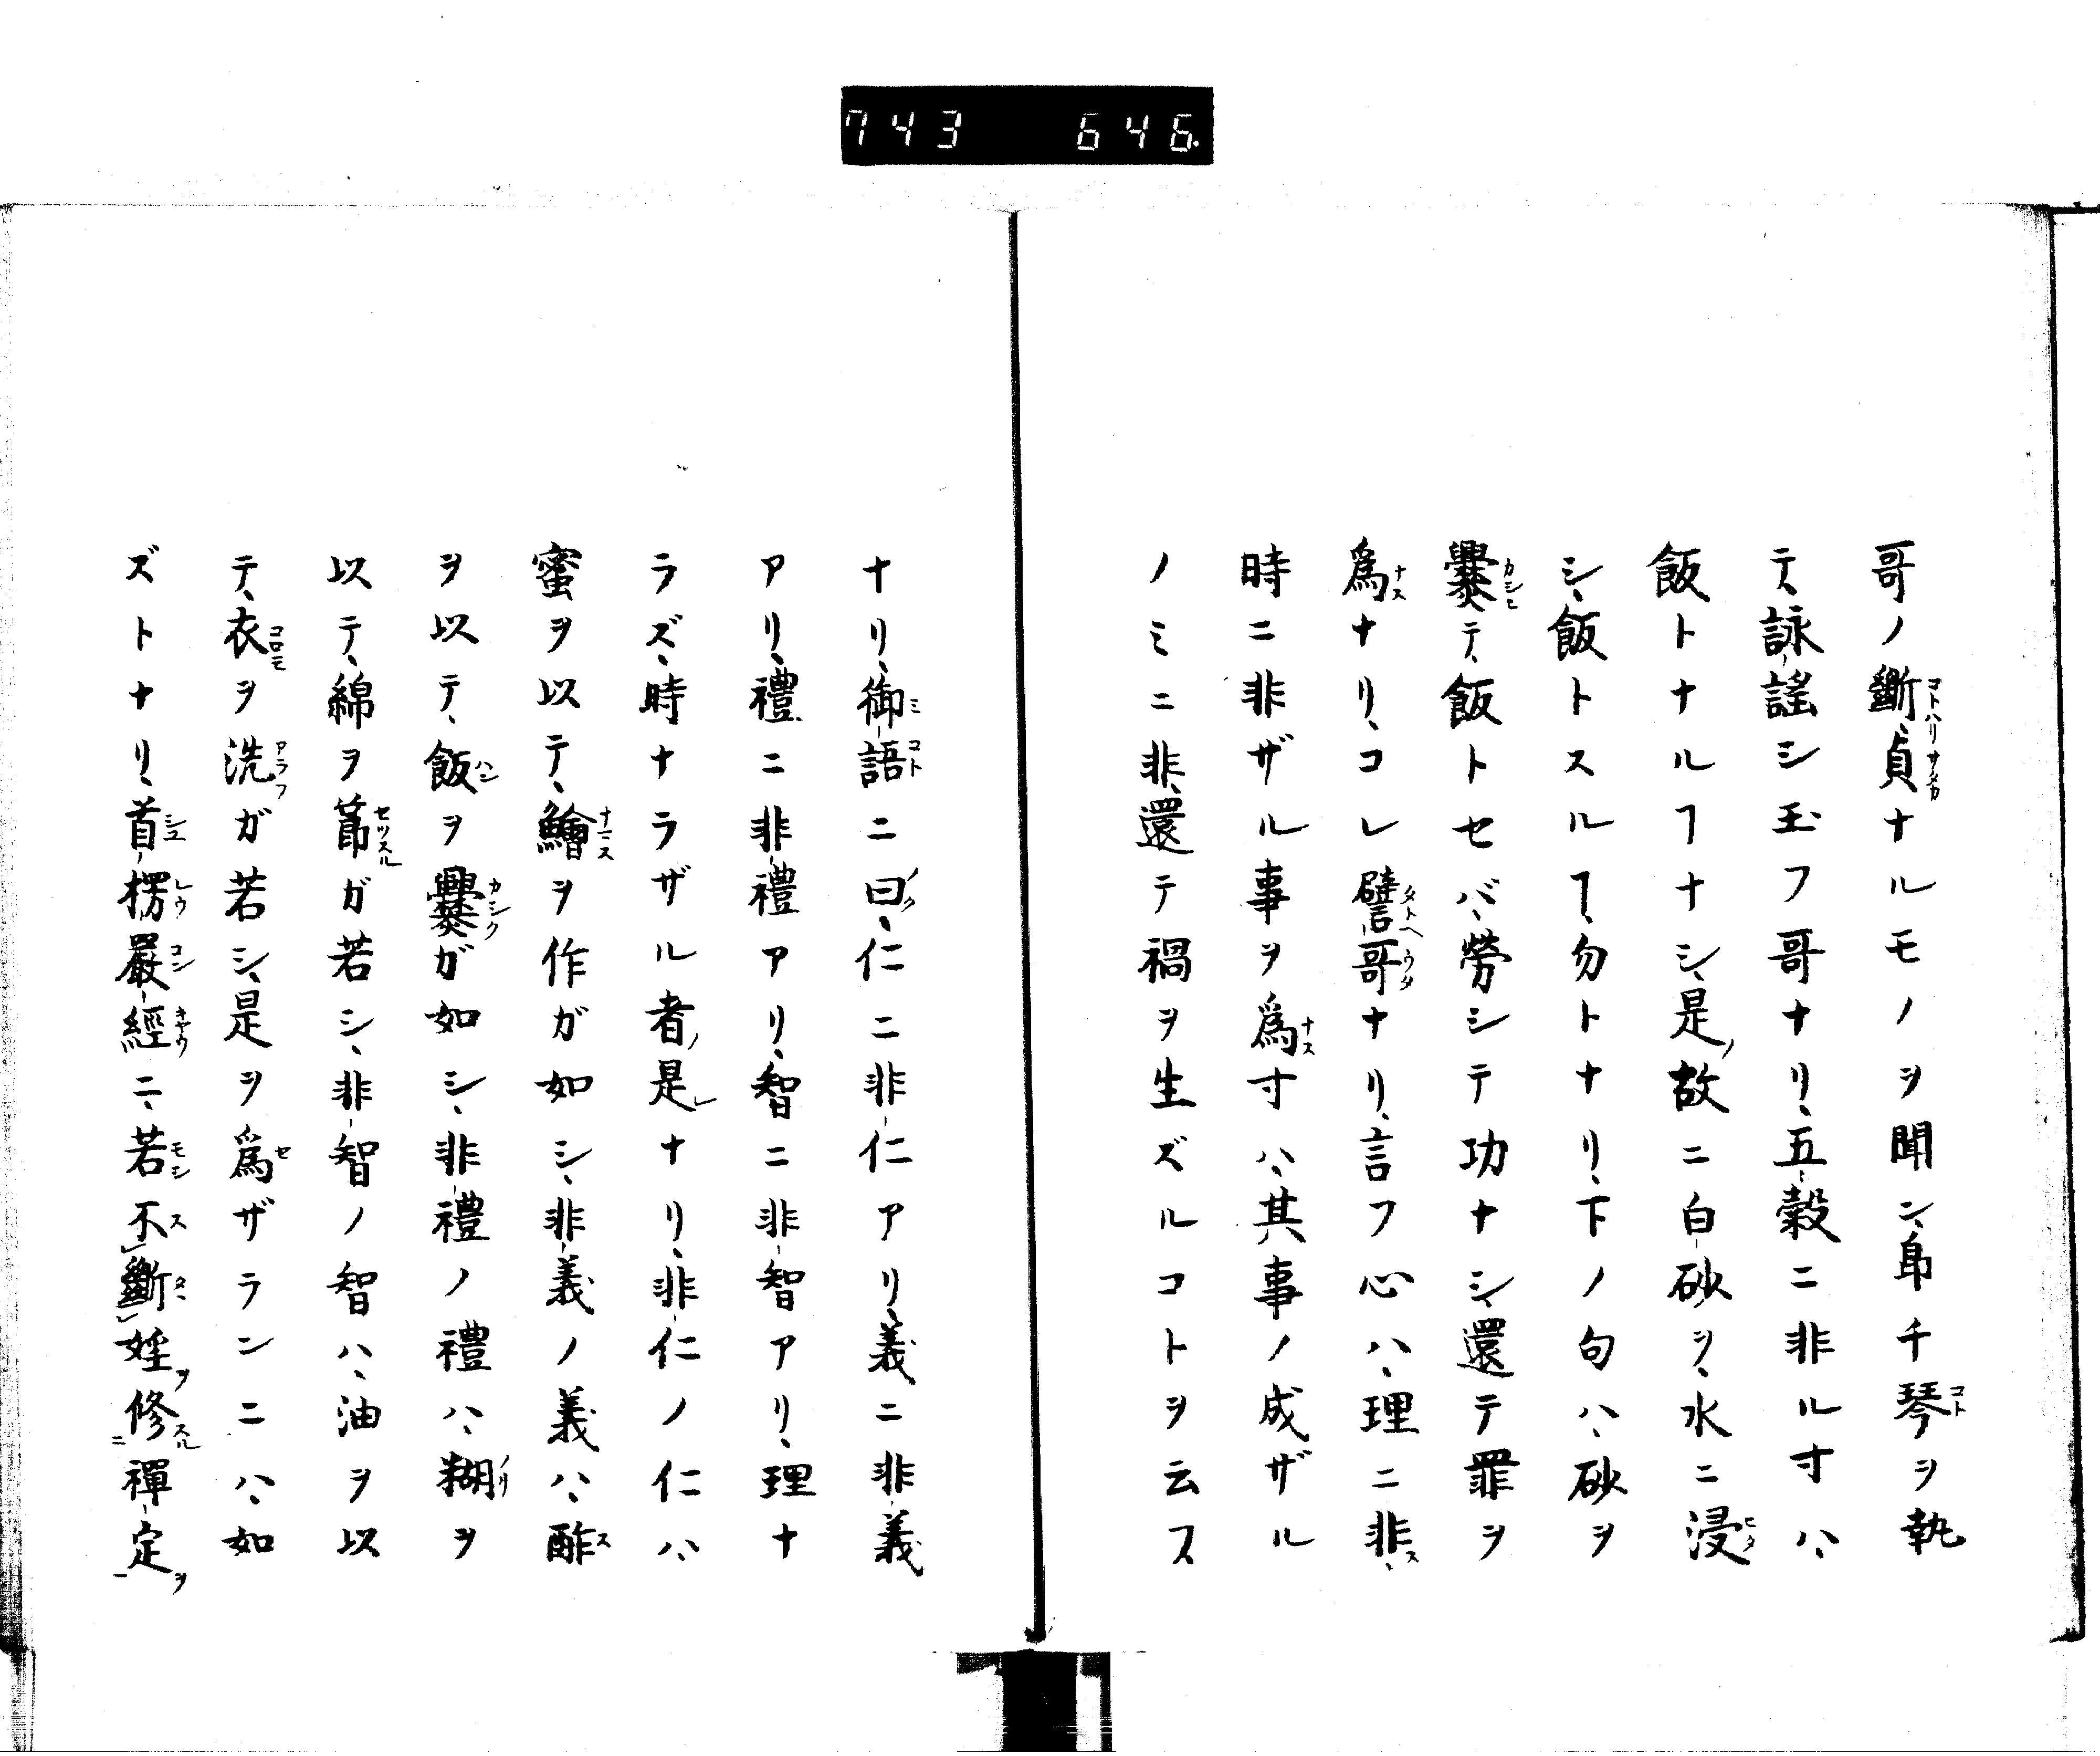 743 646
哥ノ斷貞ナルモノヲ聞ン、帛チ琴ヲ執
テ、詠謠シ玉フ哥ナリ、五穀ニ非ル寸ハ、
飯トナルヿナシ、是ノ故ニ白砂ヲ、水ニ浸
シ、飯トスルヿ、勿トナリ、下ノ句ハ、砂ヲ
爨テ、飯トセバ、勞シテ功ナシ、還テ罪ヲ
爲ナリ、コレ譬哥ナリ、言フ心ハ、理ニ非、
時ニ非ザル事ヲ爲寸ハ、其事ノ成ザル
ノミニ非、還テ禍ヲ生ズルコトヲ云ス
ナリ、御語ニ曰ク、仁ニ非仁アリ、義ニ非義
アリ、禮ニ非禮アリ、智ニ非智アリ、理ナ
ラズ、時ナラザル者ノ是レナリ、非仁ノ仁ハ、
蜜ヲ以テ、鱠ヲ作ガ如シ、非義ノ義ハ、酢
ヲ以テ、飯ヲ爨ガ如シ、非禮ノ禮ハ、糊ヲ
以テ、綿ヲ莭ガ若シ、非智ノ智ハ、油ヲ以
テ、衣ヲ洗ガ若シ、是ヲ爲ザランニハ、如
ズトナリ、首楞嚴經ニ、若不斷婬ヲ修スル禪定ヲ